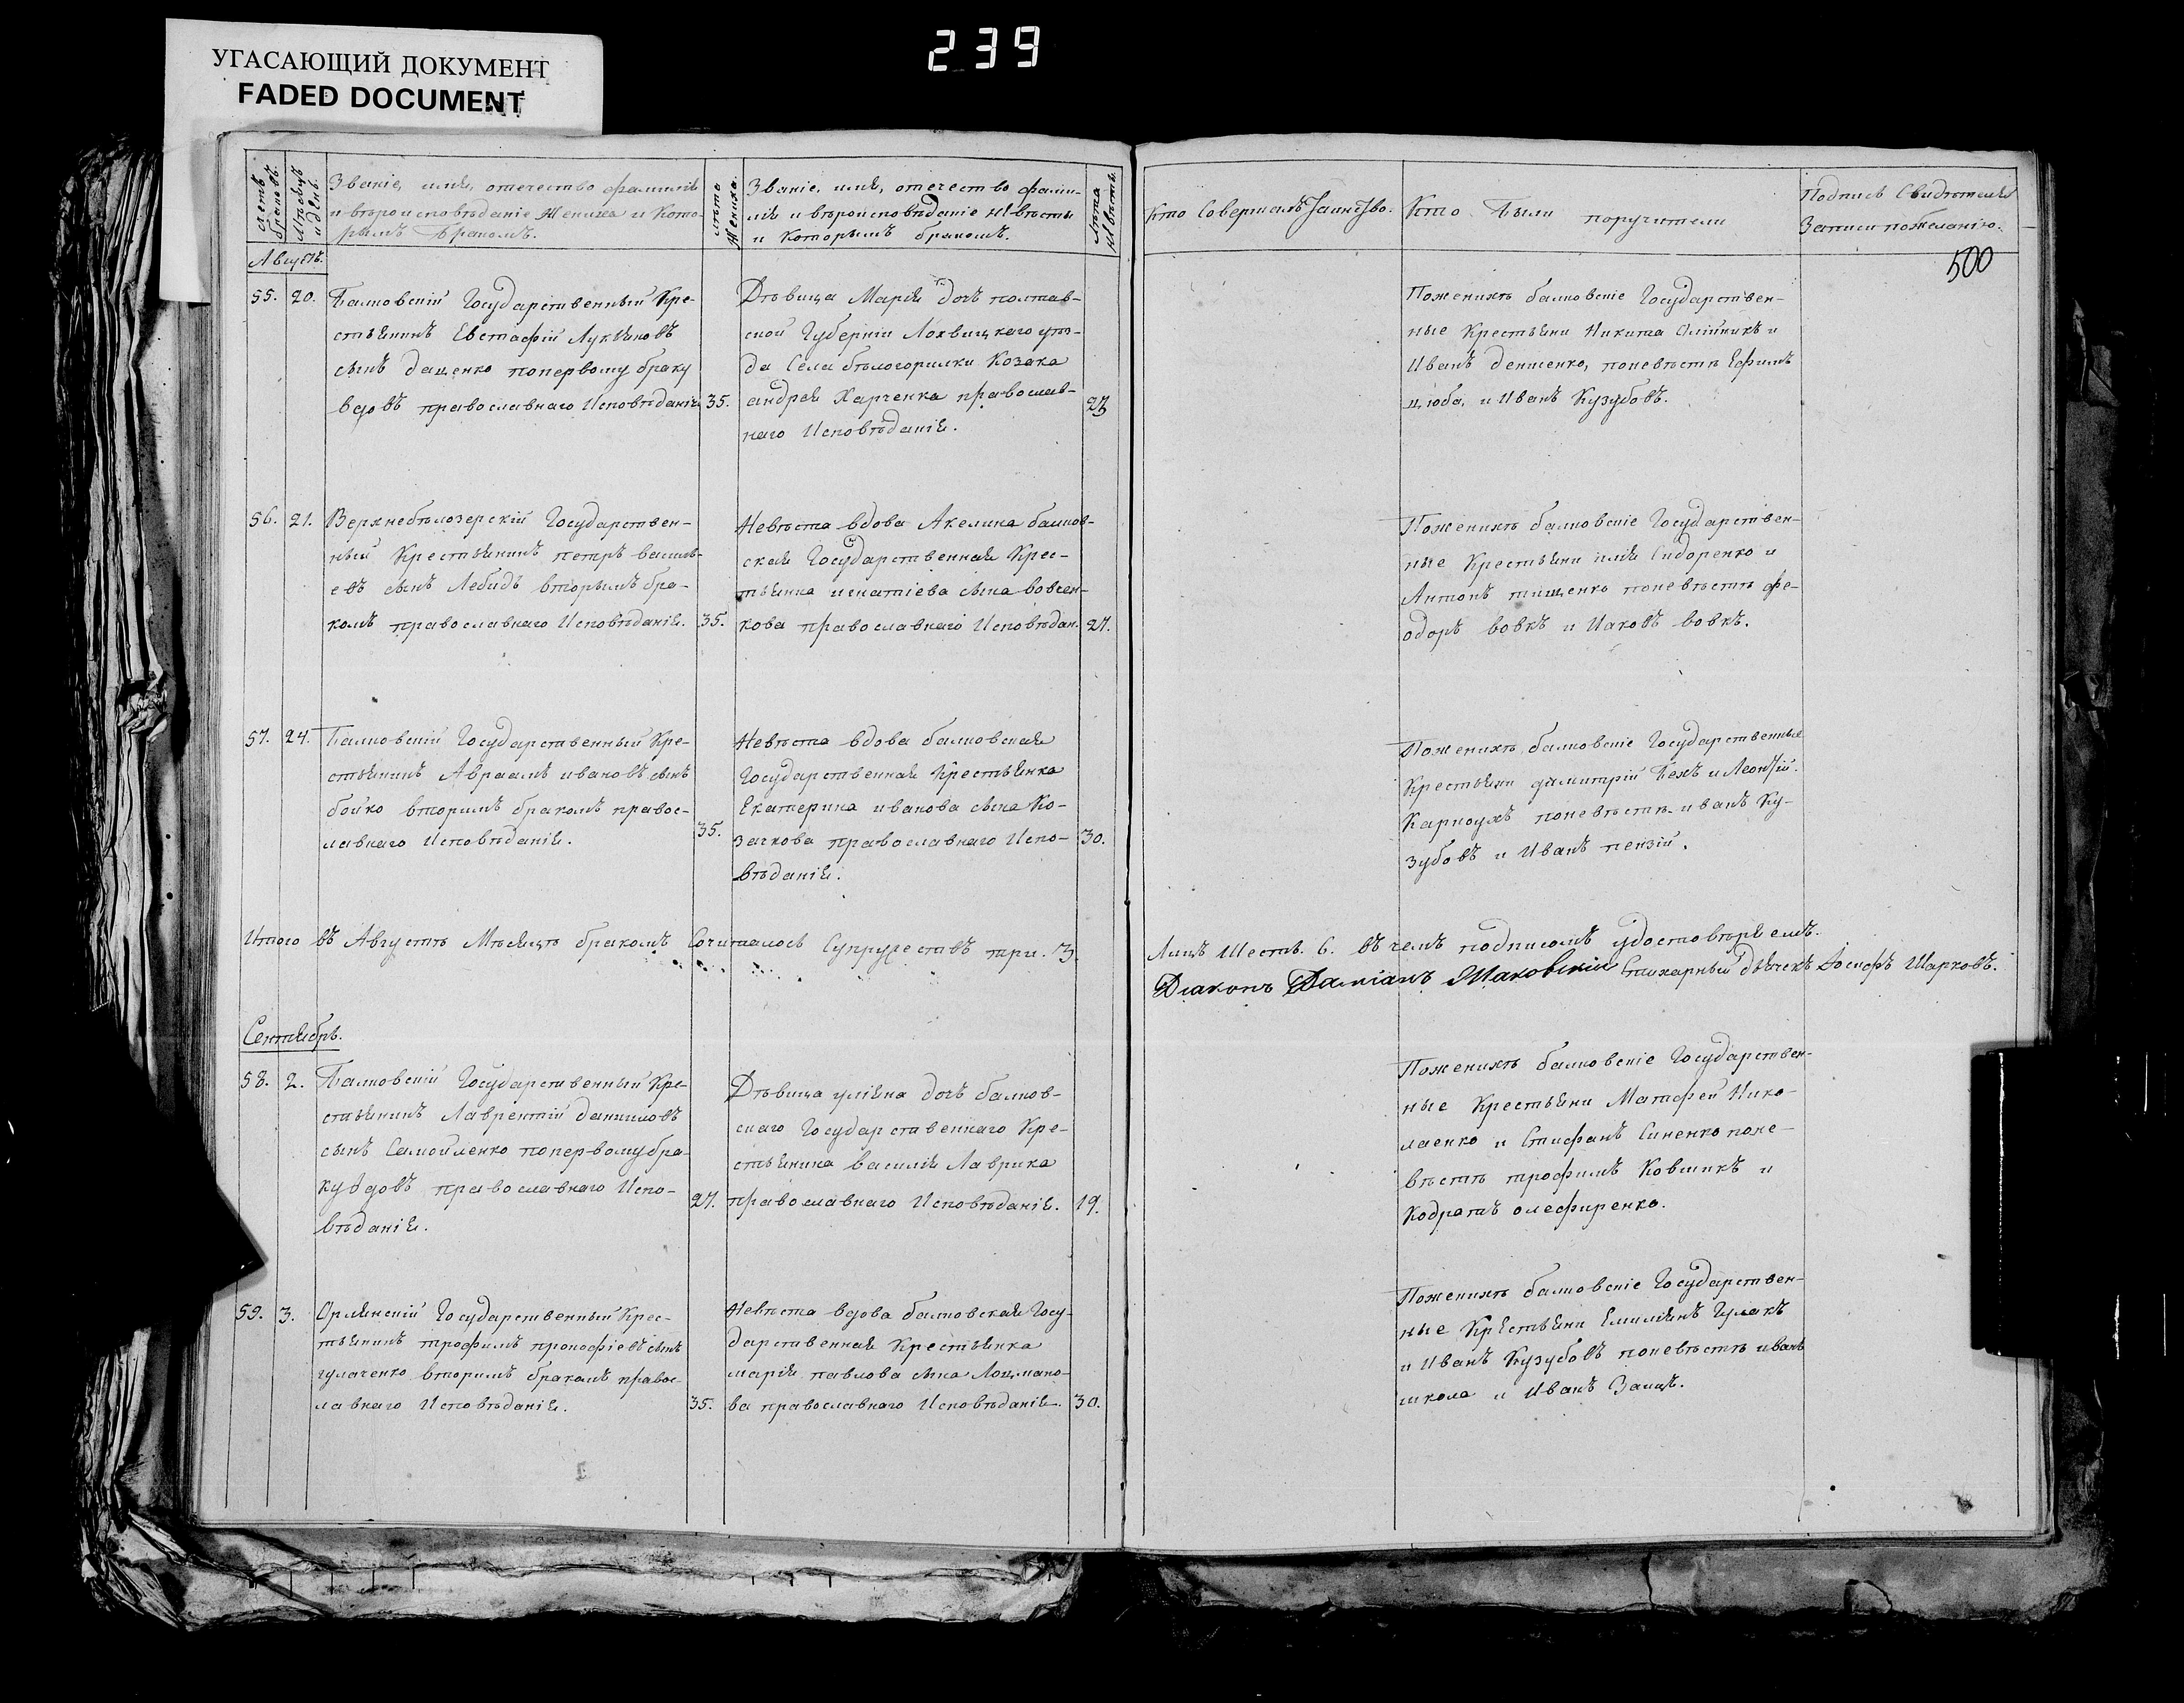 239
УГАСАЮЩИЙ ДОКУМЕНТ
FADED DOCUMENT
Счетъ браковъ.
Мѣсяцъ и день.
Званіе, имя, отечество фамилія
и вѣроисповѣданіе Жениха и Кото-
рымъ бракомъ.
лѣта Жениха.
Званіе, имя, отечество фами-
лія и вѣроисповѣданіе Нѣвѣсты
и Которымъ бракомъ.
лѣта Нѣвѣсты.
Кто Совершалъ Таинство.
Кто были поручители
Подпись Свидѣтелей
Записи пожеланію.
500
Августъ.
55. 20. Балковскій Государственный Кре-
стьянинъ Евстафій Лукьяновъ
сынъ даценко попервому браку
вдовъ православнаго Исповѣданія 35.
Дѣвица Марія дочь полтав-
ской Губерніи Лохвицкаго уѣз-
да Села бѣлогорилки Козака
андрея Харченка православ-
наго Исповѣданія.
27
Поженихѣ балковскіе Государствен-
ные Крестьяни Никита Олійникъ и
Иванъ денисенко, поневѣстѣ Ефимъ
цюба, и Иванъ Кузубовъ.
56. 21. Верхнебѣлозерскій Государствен-
ный Крестьянинъ петръ василь-
евъ сынъ Лебидь вторымъ бра-
комъ православнаго Исповѣданія. 35.
Невѣста вдова Акелина балков-
ская Государственная Крес-
тьянка игнатіева сына вовчен-
кова православнаго Исповѣдан. 27.
Поженихѣ балковскіе Государствен-
ные Крестьяни илія Сидоренко и
Антонъ тищенко поневѣстѣ фе-
одоръ вовкъ и Иаковъ вовкъ.
57. 24. Балковскій Государственный Кре-
стьянинъ Авраамъ ивановъ сынъ
бойко вторимъ бракомъ правос-
лавнаго Исповѣданія.
35.
Невѣста вдова балковская
Государственная Крестьянка
Екатерина иванова сына Ко-
зачкова православнаго Испо-
вѣданія.
30.
Поженихѣ балковскіе Государственные
Крестьяни димитрій Бехъ и Леонтій
Карпоухъ поневѣстѣ иванъ Ку-
зубовъ и Иванъ пензій.
Итого въ Августѣ Мѣсяцѣ бракомъ Сочиталось Супружествъ три. 3.
Лицъ Шесть. 6. въ чемъ подписомъ удостовѣряемъ.
Діаконъ Даміанъ Маковскій Стихарный дьячекъ Іосифъ Шарковъ.
Сентябрь.
58. 2. Балковскій Государственный Кре-
стьянинъ Лаврентій даниловъ
сынъ Самойленко попервому бра-
ку вдовъ православнаго Испо-
вѣданія.
27.
Дѣвица уліяна дочь балков-
скаго Государственнаго Кре-
стьянина василія Лаврика
православнаго Исповѣданія. 19.
Поженихѣ балковскіе Государствен-
ные Крестьяни Матфей Нико-
лаенко и Стифанъ Синенко поне-
вѣстѣ трофимъ Ковшикъ и
Кодратъ олефиренко.
59. 3. Орлянскій Государственный Крес-
тьянинъ трофимъ прокофіевъ сынъ
гулаченко вторимъ бракомъ правос-
лавнаго Исповѣданія. 35.
Невѣста вдова балковская Госу-
дарственная Крестьянка
марія павлова сына Лоцмано-
ва православнаго Исповѣданія. 30.
Поженихѣ балковскіе Государствен-
ные Крестьяни Емиліянъ Гулакъ
и Иванъ Кузубовъ поневѣстѣ иванъ
школа и Иванъ Заицъ.